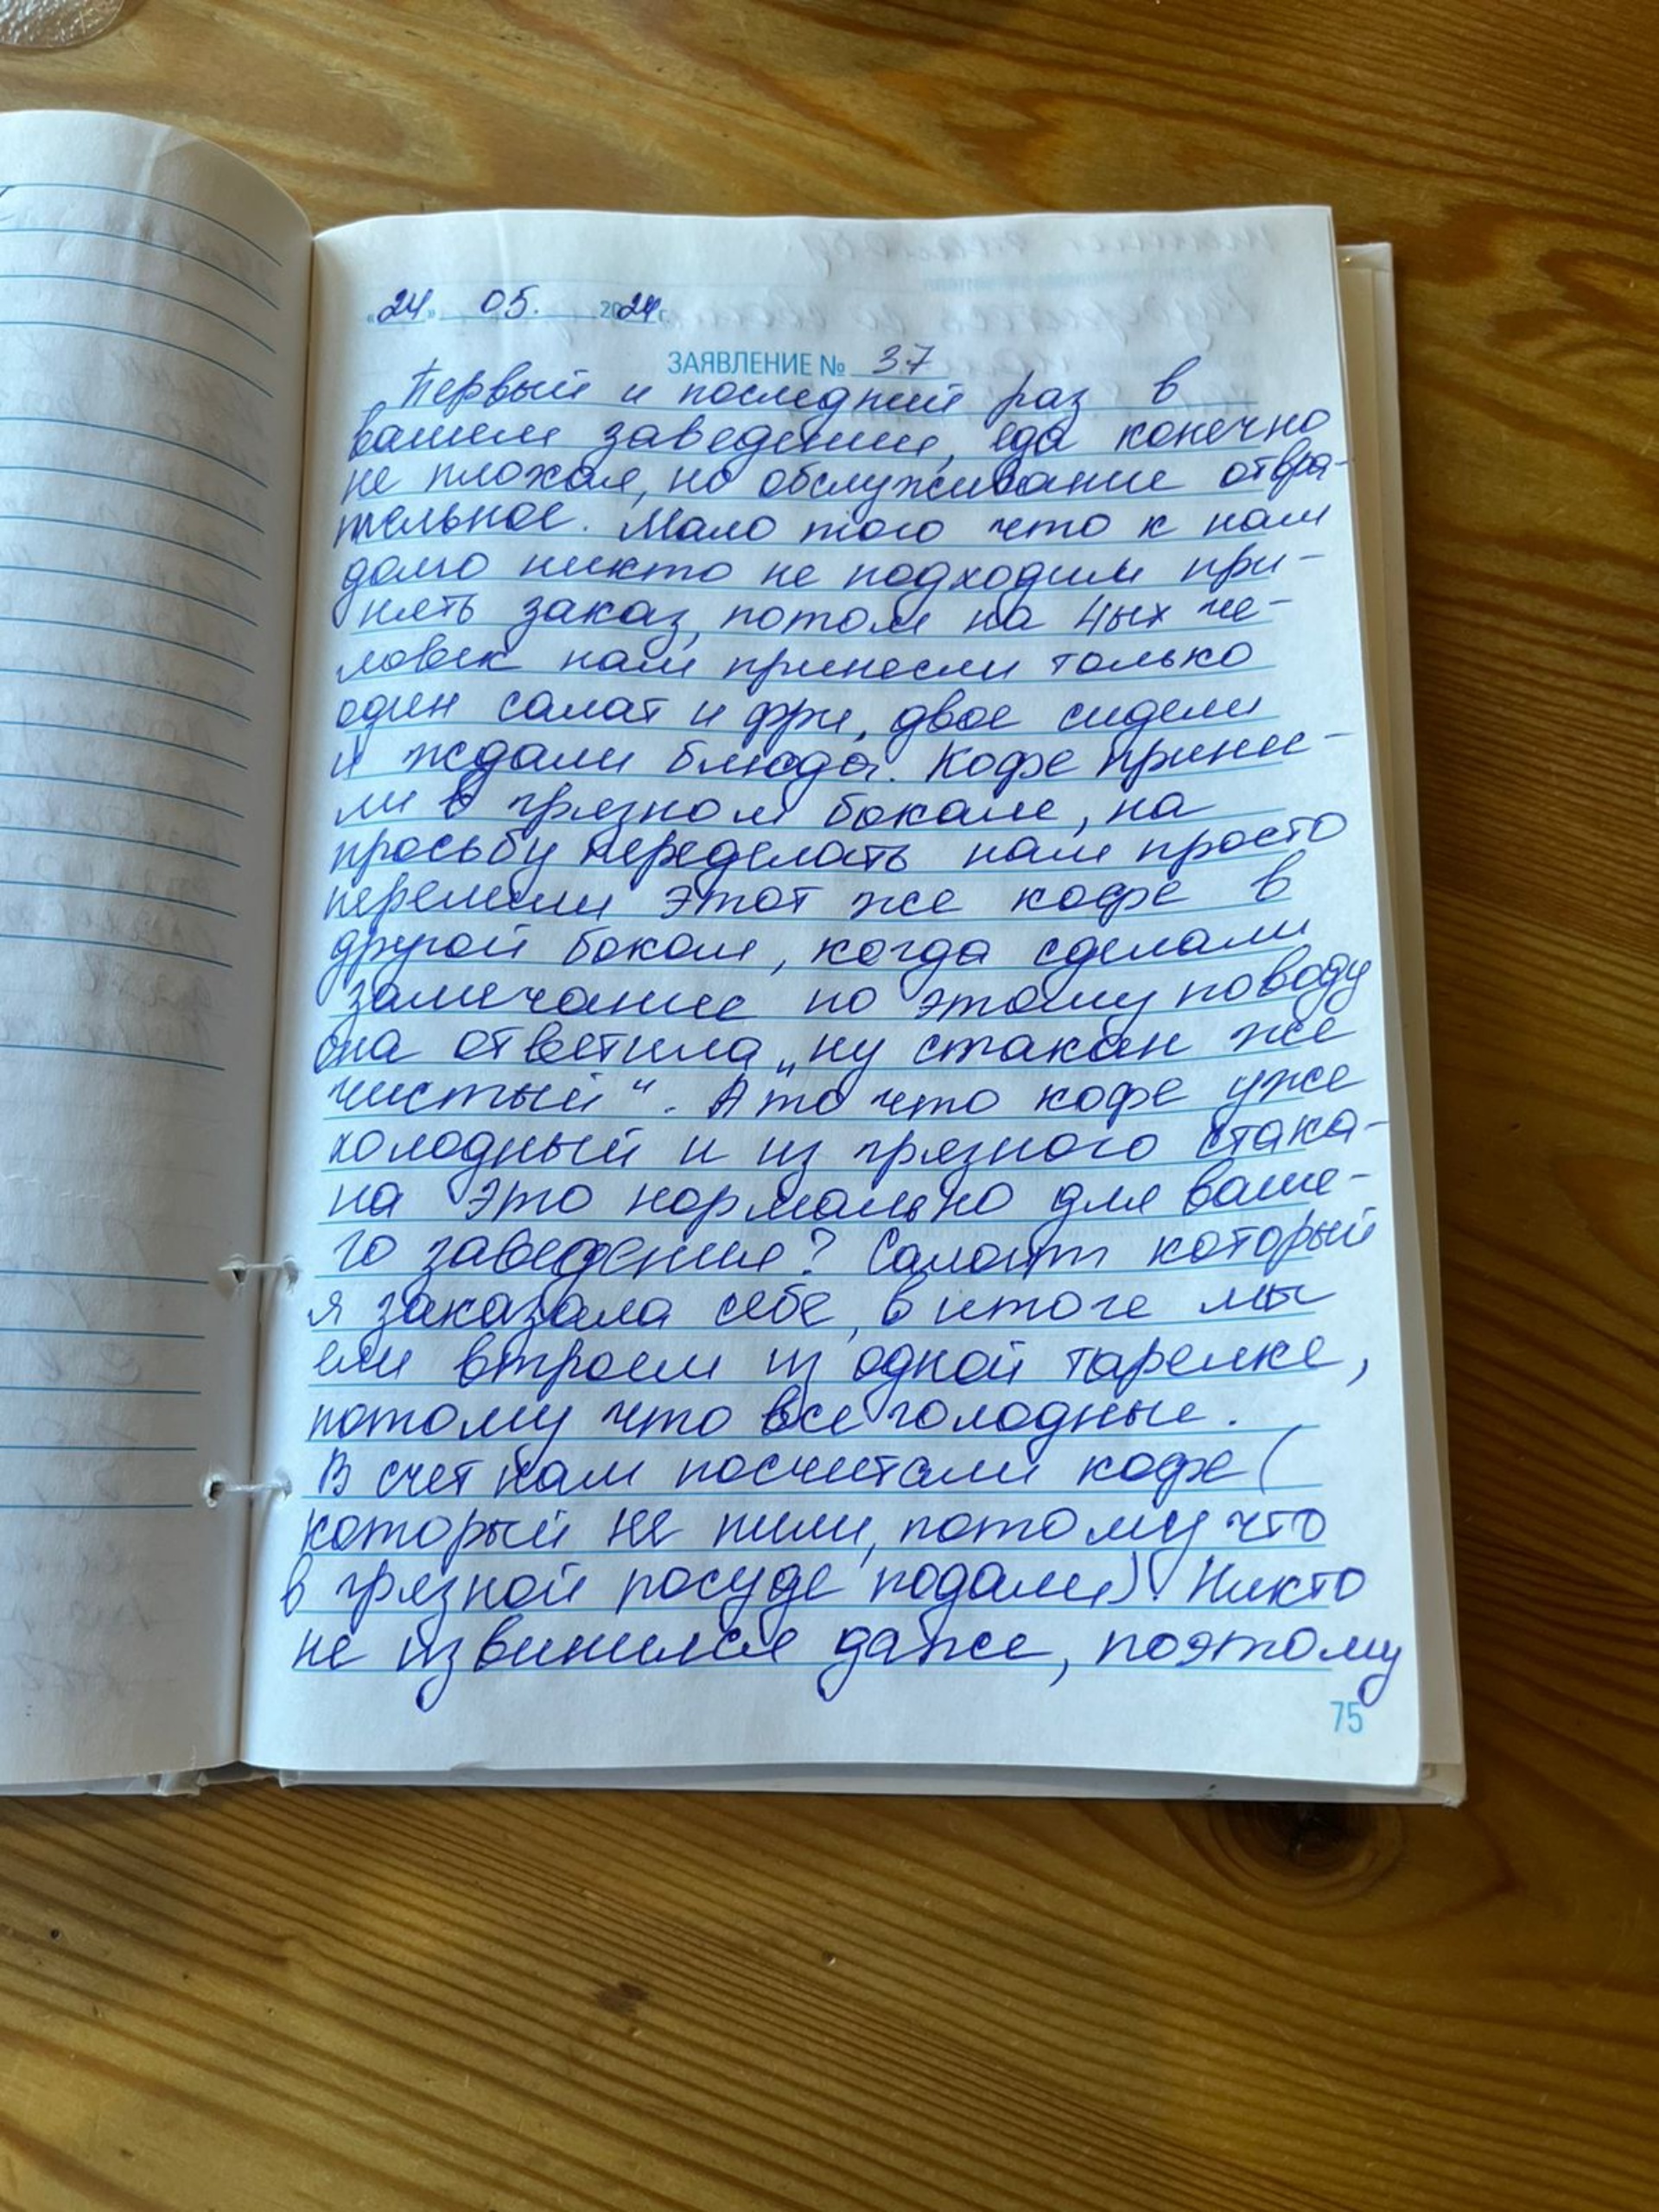 «24» 05. 2024 г.
ЗАЯВЛЕНИЕ № 37
Первый и последний раз в
вашем заведении, еда конечно
не плохая, но обслуживание отвра-
тельное. Мало того что к нам
долго никто не подходил при-
нять заказ, потом на 4ых че-
ловек нам принесли только
один салат и фри, двое сидели
и ждали блюда. Кофе прине-
ли в грязном бокале, на
просьбу переделать нам просто
перелили этот же кофе в
другой бокал, когда сделали
замечание по этому поводу
она ответила „ну стакан же
чистый“. А то что кофе уже
холодный и из грязного стака-
на это нормально для ваше-
го заведения? Салат который
я заказала себе, в итоге мы
ели втроем из одной тарелке,
потому что все голодные.
В счет нам посчитали кофе (
который не пили, потому что
в грязной посуде подали). Никто
не извинился даже, поэтому
75